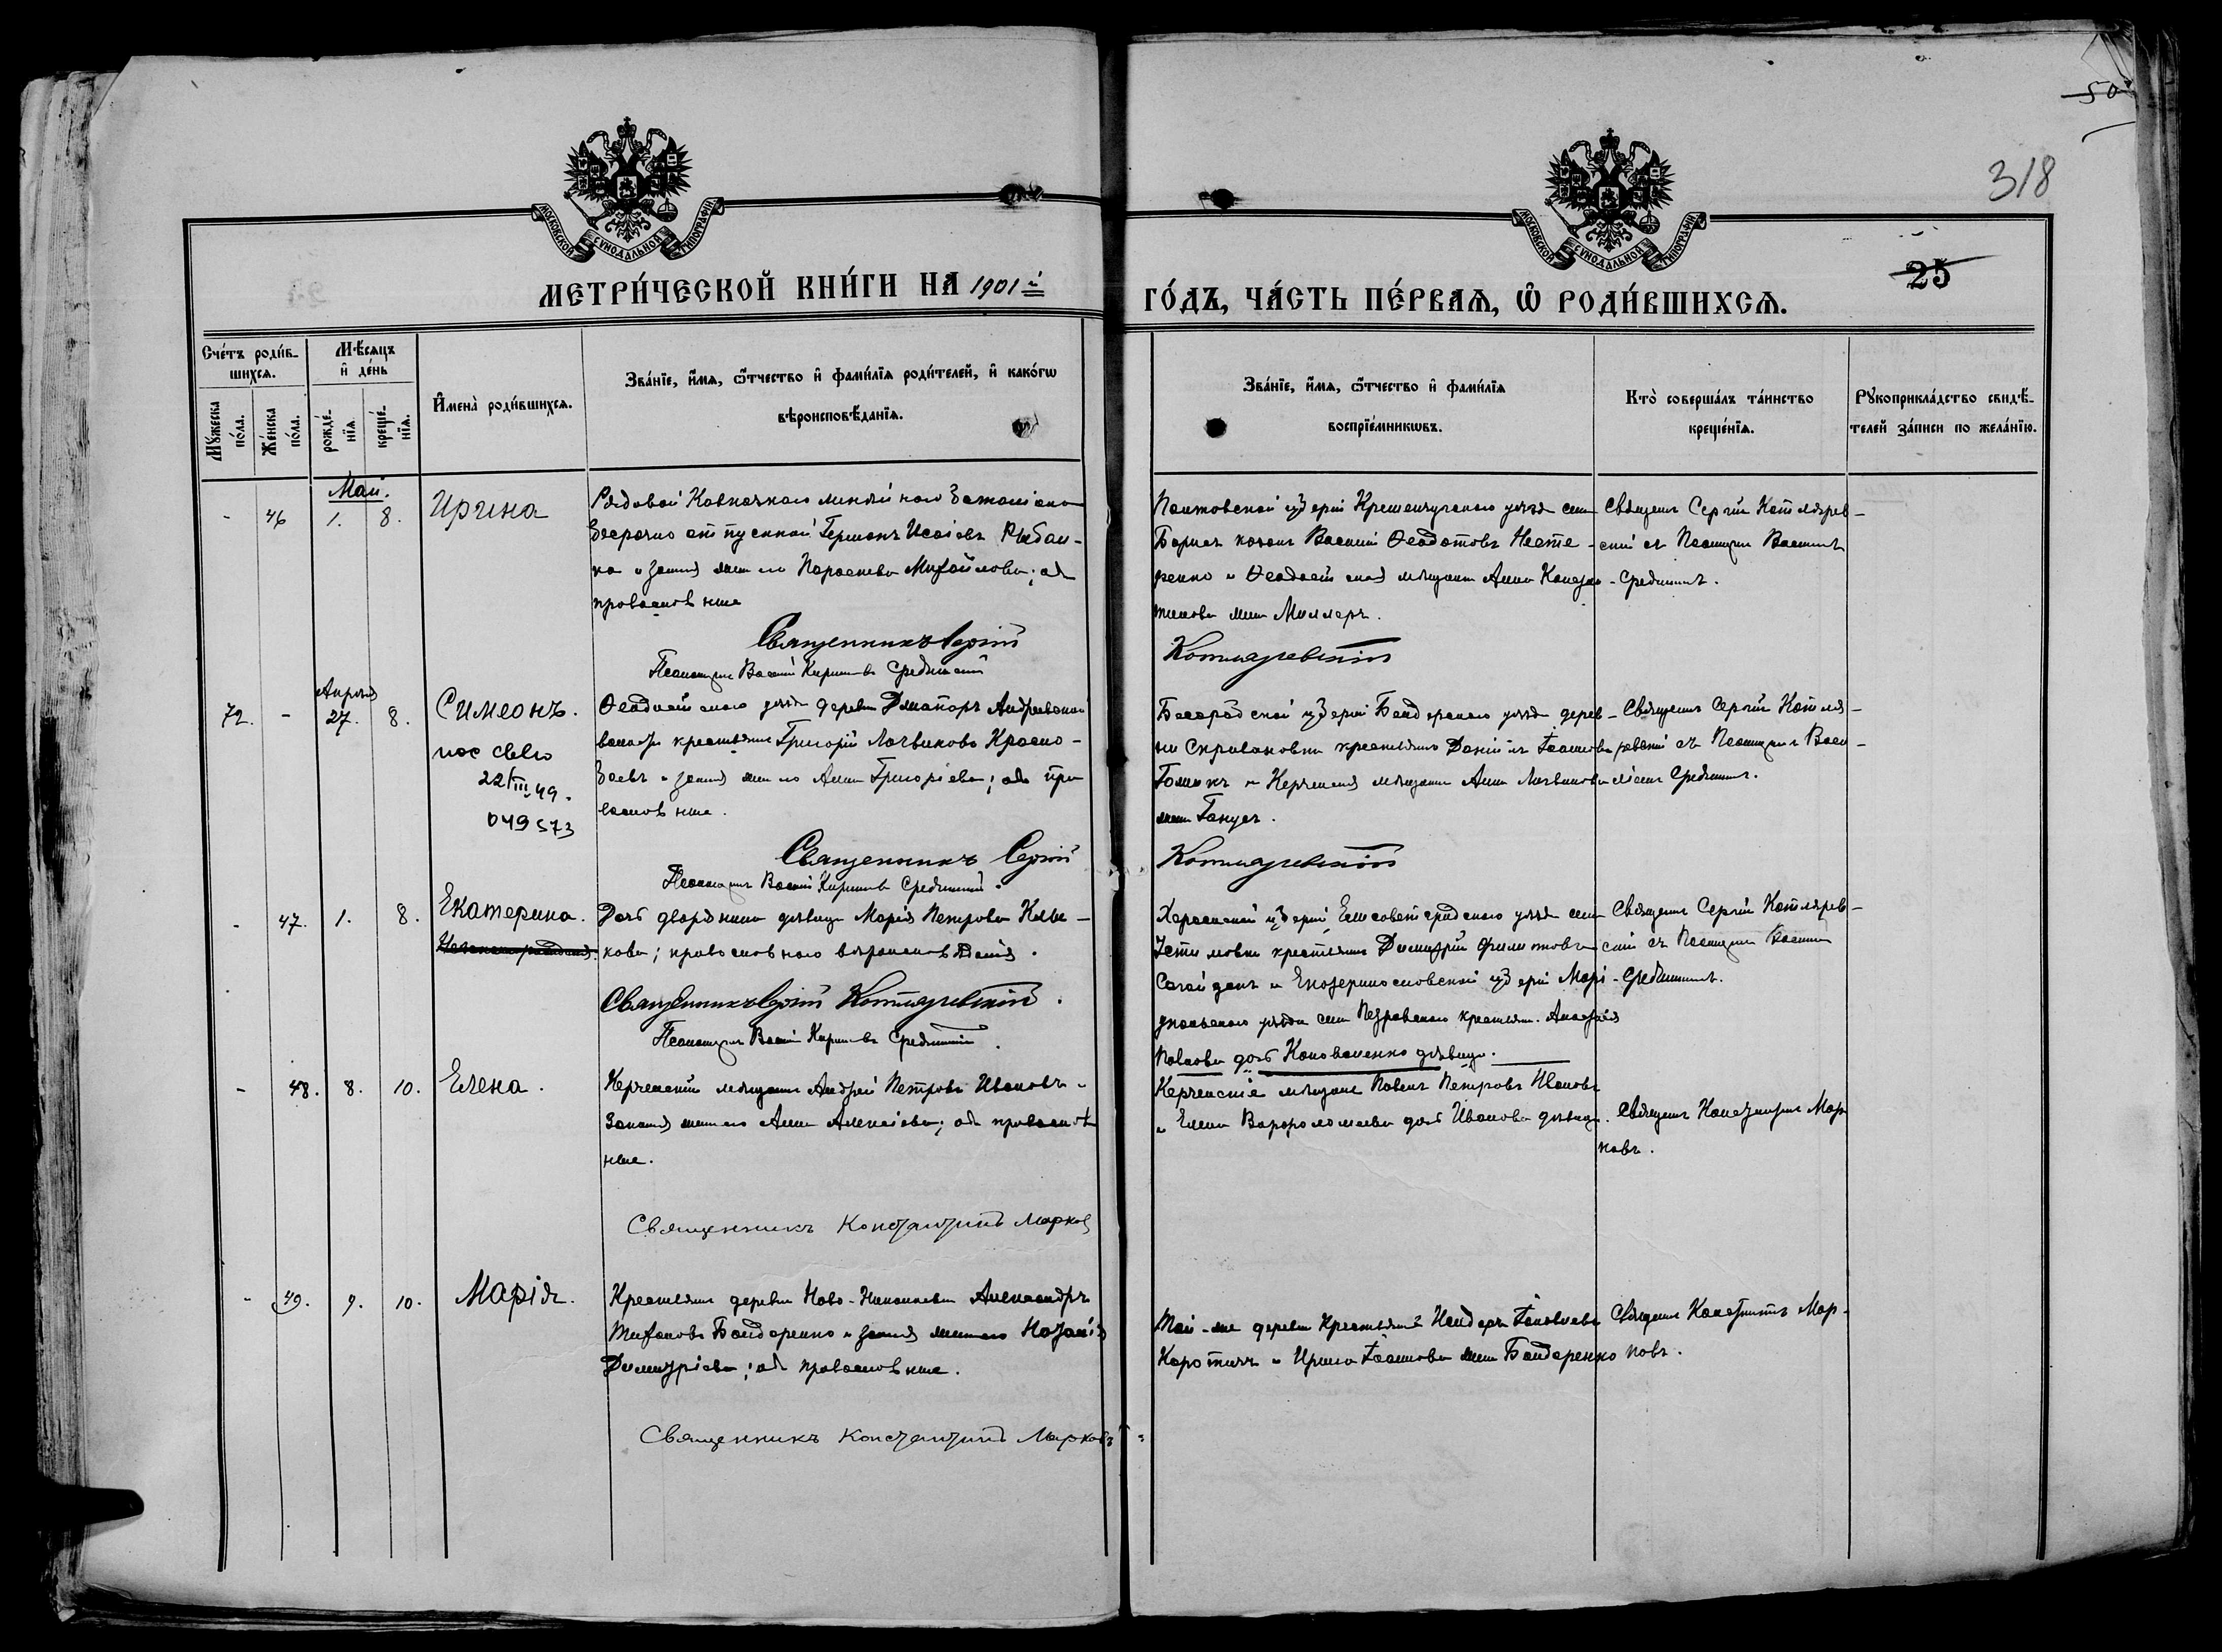 50
318
25
МОСКОВСКОЙ СѴНОДАЛЬНОЙ ТИПОГРАФІИ
МОСКОВСКОЙ СѴНОДАЛЬНОЙ ТИПОГРАФІИ
МЕТРИ́ЧЕСКОЙ КНИ́ГИ НА 1901 й
ГО́ДЪ, ЧА́СТЬ ПЕ́РВАѦ, Ѡ҆ РОДИ́ВШИХСѦ.
Сче́тъ роди́в-
шихсѧ.
Мꙋ́жеска по́ла.
Же́нска по́ла.
Мѣ́сѧцъ
и҆ де́нь
рожде́-
нїѧ.
креще́-
нїѧ.
И҆мена̀ роди́вшихсѧ.
Зва́нїе, и҆́мѧ, ѻ҆́тчество и҆ фами́лїѧ роди́телей, и҆ како́гѡ
вѣроисповѣ́данїѧ.
Зва́нїе, и҆́мѧ, ѻ҆́тчество и҆ фами́лїѧ
воспрїе́мникѡвъ.
Кто̀ соверша́лъ та́инство
креще́нїѧ.
Рꙋкоприкла́дство свидѣ́-
телей за́писи по жела́нїю.
Май.
- 46 1. 8. Ирина
Рядовой Кавказскаго линейнаго баталіона
безсрочно отпускной Германъ Исаіевъ Рыбал-
ка и законная жена его Параскева Михайлова; оба
православные
Священникъ Сергій
Псаломщик Василій Кириллов Срединский
Полтавской губерніи Кременчугскаго уѣзда села
козакъ Василій Ѳеодотовъ Несте-
ренко и Ѳеодосійская мѣщанка Анна Констан-
тинова жена Миллеръ.
Котляревскій
Священникъ Сергій Котлярев-
скій съ Псаломщикомъ Василіемъ
Средински́мъ.
Апрѣля
72. - 27. 8. Симеонъ.
пос свево
22/III 49.
049573
Ѳеодосійскаго уѣзда деревни
волости крестьянинъ Григорій Логвиновъ Красно-
баевъ и законная жена его Анна Григоріева; оба пра-
вославные.
Священникъ Сергій
Псаломщик Василій Кириллов Средински́й.
Бессарабской губерніи Бендерскаго уѣзда дерев-
ни крестьянинъ Даніилъ Іоанновъ
и Керченская мѣщанка Анна Логвинова
жена
Котляревскій
Священникъ Сергій Котля-
ревскій съ Псаломщикомъ Васи-
ліемъ Средински́мъ.
- 47. 1. 8. Екатерина.
Незаконнорожденная.
Дочь дворянина дѣвица Марія Петрова Клы-
кова; православнаго вѣроисповѣданія.
Священникъ Сергій Котляревскій.
Псаломщик Василій Кириллов Средински́й.
Херсонской губерніи Елисаветградскаго уѣзда села
крестьянинъ Димитрій Филиповъ
и Екатеринославской губерніи Марі-
упольскаго уѣзда села Петровскаго крестьян. Анастасія
Павлова дочь Коноваленко дѣвица.
Священникъ Сергій Котлярев-
скій съ Псаломщикомъ Василіемъ
Средински́мъ.
- 48. 8. 10. Елена.
Керченскій мѣщанинъ Андрей Петровъ Ивановъ и
законная жена его Анна Алексіева; оба православ-
ные.
Священникъ Константинъ Марковъ
Керченскіе мѣщане Павелъ Петровъ Ивановъ
и Елена Варѳоломеева дочь Иванова дѣвица.
Священникъ Константинъ Мар-
ковъ.
- 49. 9. 10. Марія.
Крестьянинъ деревни Ново-Николаевки Александръ
Тихоновъ Бондаренко и законная жена его Наталія
Димитріева; оба православные.
Священникъ Константинъ Марковъ
Той-же деревни крестьяне
и Ирина Іоаннова жена Бондаренко
Священникъ Константинъ Мар-
ковъ.